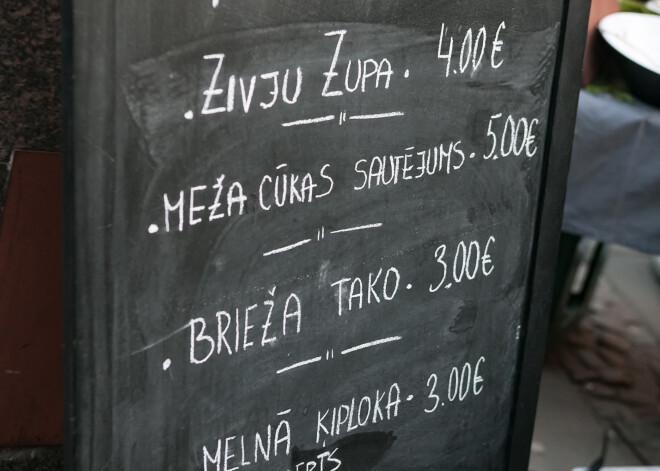 . ZIVJU ZUPA . 4.00€
— " —
. MEŽA CŪKAS SAUTĒJUMS . 5.00€
— " —
. BRIEŽA TAKO . 3.00€
— " —
MELNĀ ĶIPLOKA - 3.00€